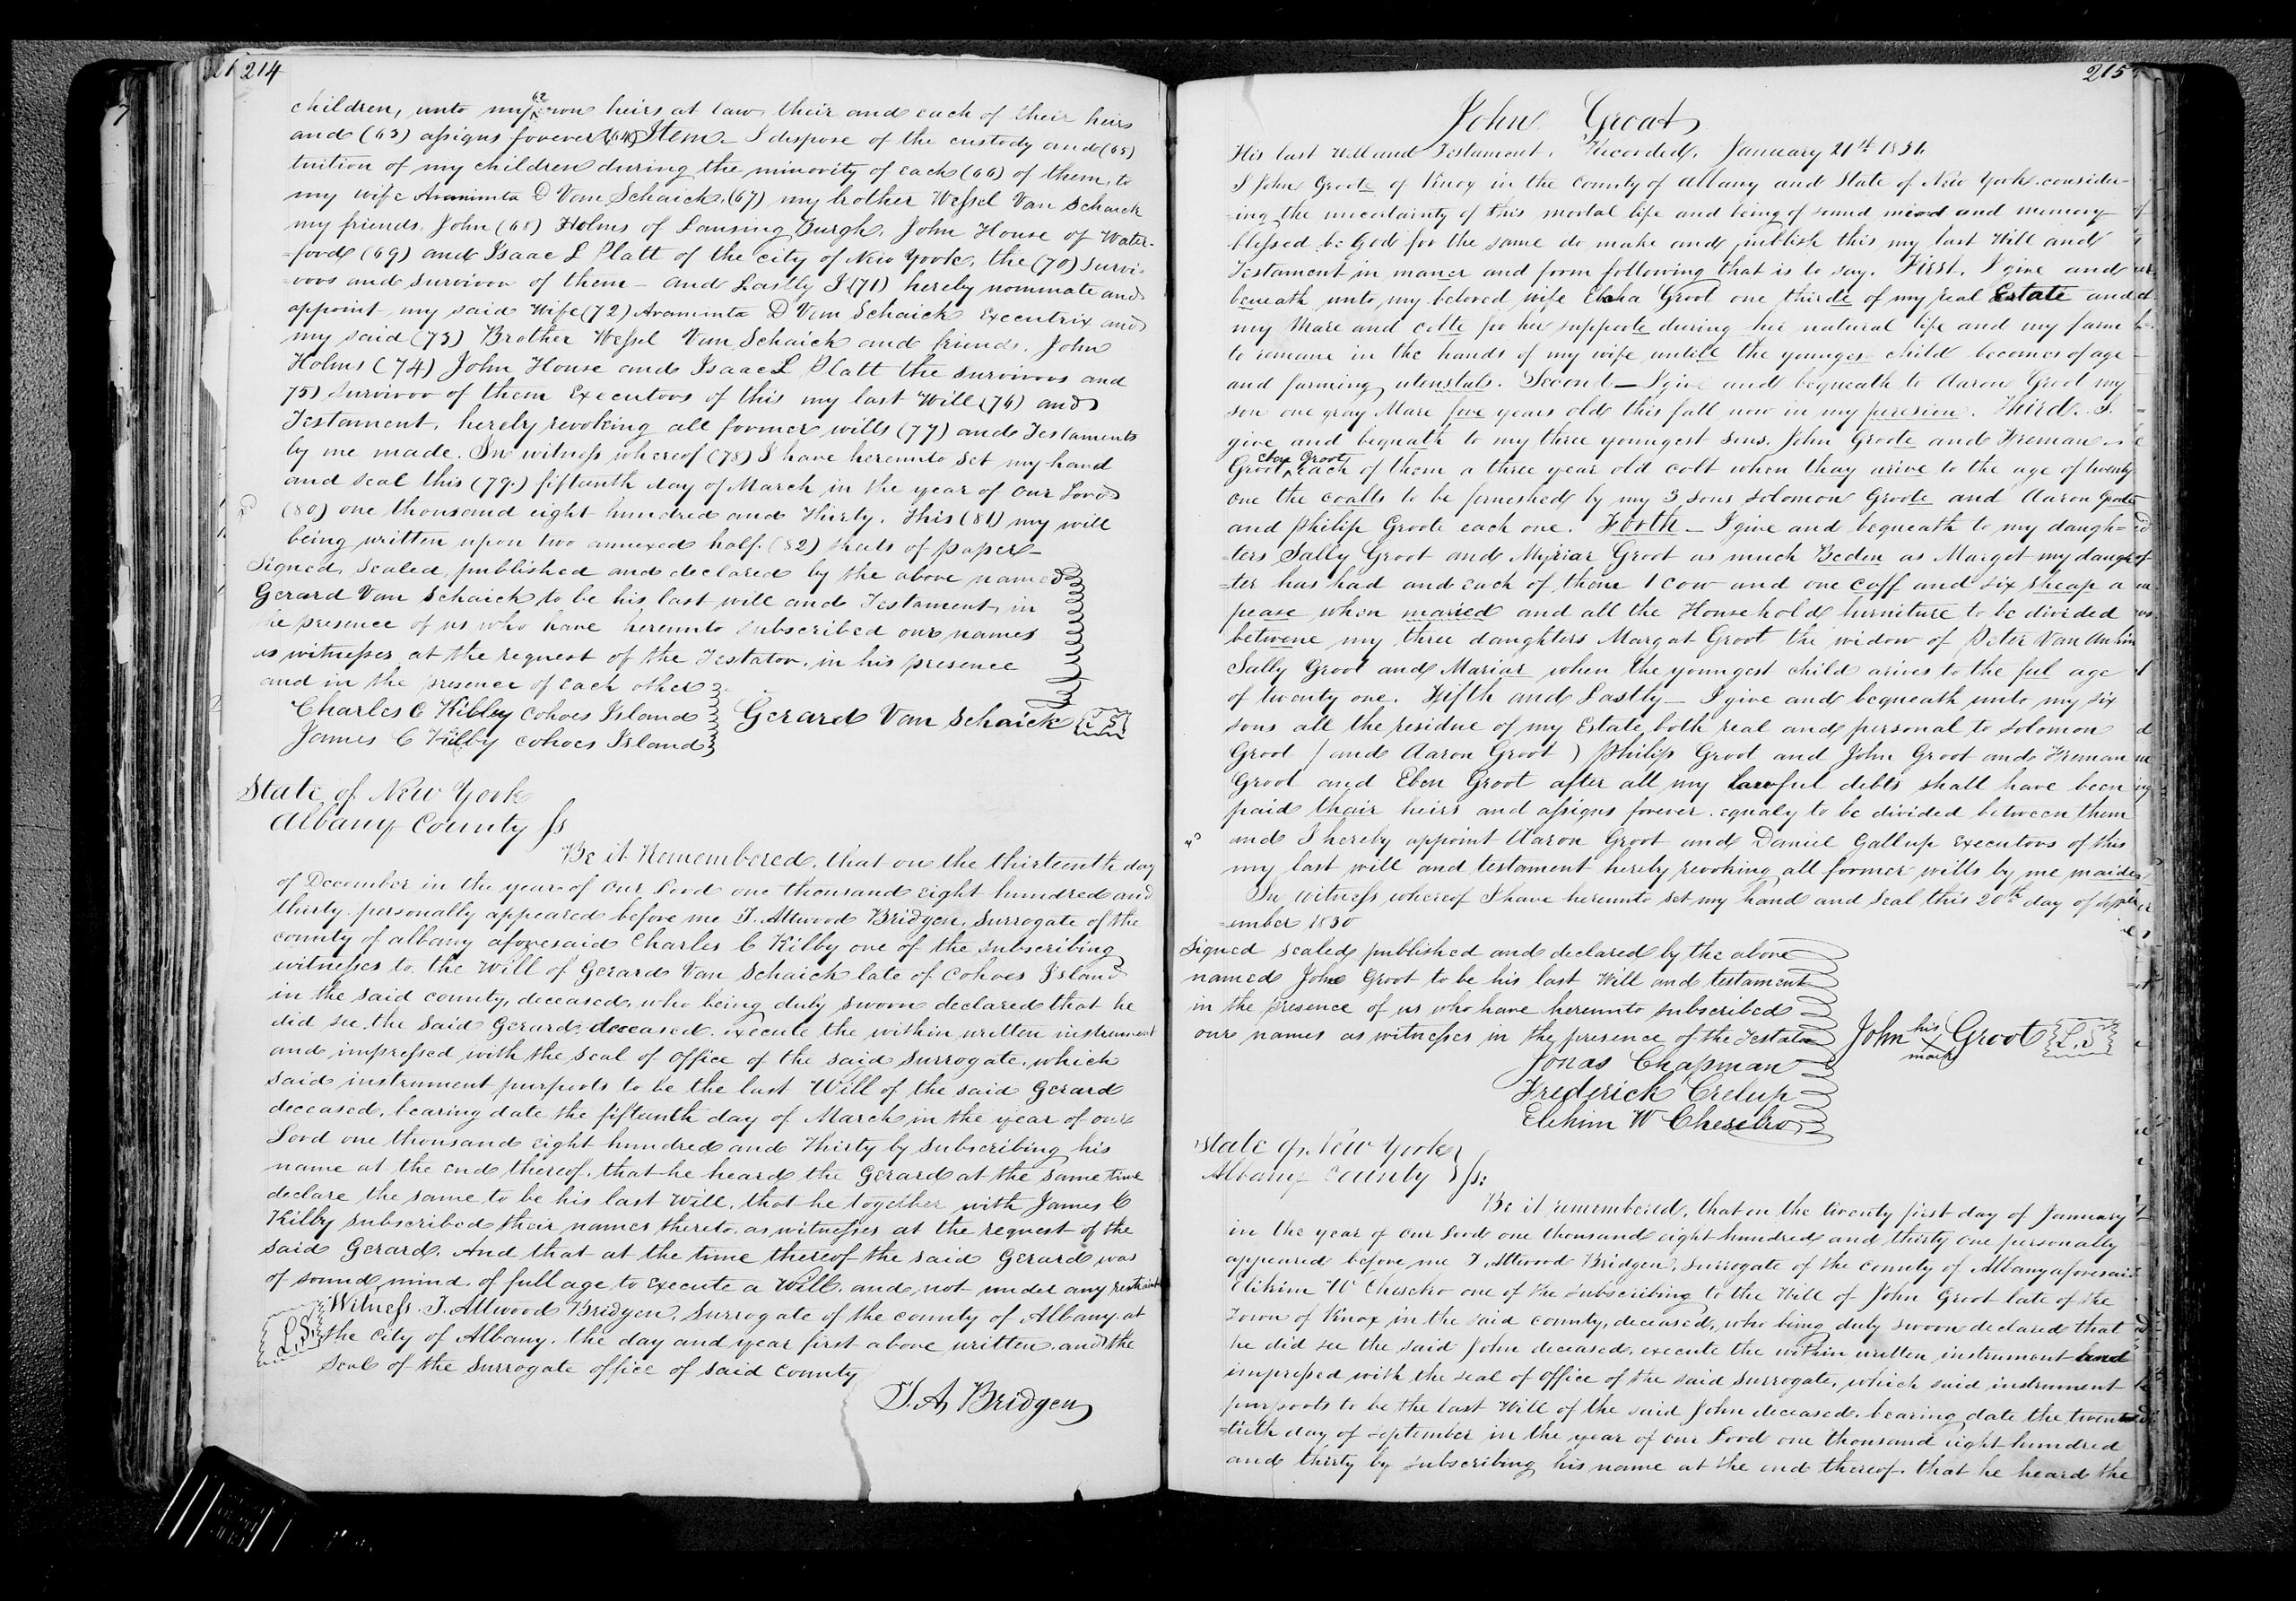 214
children, unto my 62 own heirs at law, their and each of their heirs
and (63) assigns forever (64) Item – I dispose of the custody and (65)
tuition of my children during the minority of each (66) of them, to
my wife Araminta D Van Schaick, (67) my brother Wessel Van Schaick
my friends, John (68) Holms of Lansing Burgh, John House of Water-
=ford (69) and Isaac L Platt of the city of New York, the (70) survi-
=vors and survivor of them – and Lastly I (71) hereby nominate and
appoint my said Wife (72) Araminta D Van Schaick Executrix and
my said (73) Brother Wessel Van Schaick and friends, John
Holms (74) John House and Isaac L Platt the survivors and
75) survivor of them Executors of this my last Will (76) and
Testament, hereby revoking all former wills (77) and Testaments
by me made. In witness whereof (78) I have hereunto set my hand
and seal this (79.) fifteenth day of March in the year of our Lord
(80) one thousand eight hundred and Thirty. This (81) my will
being written upon two annexed half. (82) sheets of paper –
Signed, sealed, published and declared by the above named
Gerard Van Schaick to be his last will and Testament, in
the presence of us who have hereunto subscribed our names
as witnesses at the request of the Testator, in his presence
and in the presence of each other
Charles C Kilby Cohoes Island Gerard Van Schaick L S
James C Kilby Cohoes Island
State of New York
Albany County ss
Be it Remembered, that on the thirteenth day
of December in the year of our Lord one thousand eight hundred and
thirty personally appeared before me T. Attwood Bridgen, Surrogate of the
county of albany aforesaid Charles C Kilby one of the subscribing
witnesses to the Will of Gerard Van Schaick late of Cohoes Island
in the said county, deceased, who being duly sworn declared that he
did see the said Gerard, deceased, execute the within written instrument
and impressed with the seal of office of the said surrogate, which
said instrument purports to be the last Will of the said Gerard
deceased, bearing date the fifteenth day of March in the year of our
Lord one thousand eight hundred and Thirty by subscribing his
name at the end thereof, that he heard the Gerard at the same time
declare the same to be his last Will, that he together with James C
Kilby subscribed their names thereto, as witnesses at the request of the
said Gerard. And that at the time thereof the said Gerard was
of sound mind, of full age to execute a Will, and not under any restraint
Witness T. Attwood Bridgen, Surrogate of the county of Albany, at
L.S. the City of Albany, the day and year first above written, and the
seal of the Surrogate office of said county
T. A. Bridgen
215
John Groat
His last Will and Testament. Recorded, January 21st 1831.
I John Groote of Knox in the County of Albany and State of New York consider-
=ing the uncertainty of this mortal life and being of sound mind and memory
blessed be God for the same do make and publish this my last Will and
Testament in maner and form following that is to say. First. I give and
beneath unto my beloved wife Ebcha Groot one thirde of my real Estate and
my Mare and colte for her supporte during her natural life and my farm
to remane in the hands of my wife untile the younges child becomes of age
and farming utenstuls. Second – I give and bequeath to Aaron Groot my
son one gray Mare five years old this fall now in my peresion. Third. I
give and bequath to my three youngest sons, John Groote and Freman
Groot, Eben Groot each of them a three year old colt when thay arive to the age of twenty
one the coalts to be furneshed by my 3 sons Solomon Groote and Aaron Groote
and Philip Groote each one. Forth – I give and bequeath to my daugh=
=ters Sally Groot and Myriar Groot as much Beden as Margot my daugh
=ter has had and each of them 1 cow and one caff and six sheap a
pease when maried and all the Household furniture to be divided
betwene my three daughters Margat Groot the widow of Peter Van
Sally Groot and Mariar when the youngest child arives to the ful age
of twenty one. Fifth and Lastly – I give and bequeath unto my six
sons all the residue of my Estate both real and personal to Solomon
Groot / and Aaron Groot ) Philip Groot and John Groot and Freman
Groot and Eben Groot after all my lawful debts shall have been
paid thair heirs and assigns forever equaly to be divided between them
and I hereby appoint Aaron Groot and Daniel Gallup Executors of this
my last will and testament hereby revoking all former wills by me maide
In witness whereof I have hereunto set my hand and seal this 20th day of Sept
=ember 1830
Signed sealed published and declared by the above
named John Groot to be his last Will and testament
in the presence of us who have hereunto subscribed
our names as witnesses in the presence of the Testator John his X mark Groot L.S
Jonas Chapman
Frederick Crelup
Elihim W Chesebro
State of New York
Albany County ss:
Be it remembered, that on the twenty first day of January
in the year of our Lord one thousand eight hundred and thirty one personally
appeared before me T Attwood Bridgen, surrogate of the county of Albany aforesaid
Elikim W Chesebro one of the subscribing to the Will of John Groot late of the
Town of Knox in the said county, deceased, who being duly sworn declared that
he did see the said John deceased, execute the within written instrument and
impressed with the seal of office of the said surrogate, which said instrument
purports to be the last Will of the said John deceased, bearing date the twen
=tieth day of September in the year of our Lord one thousand eight hundred
and thirty by subscribing his name at the end thereof, that he heard the